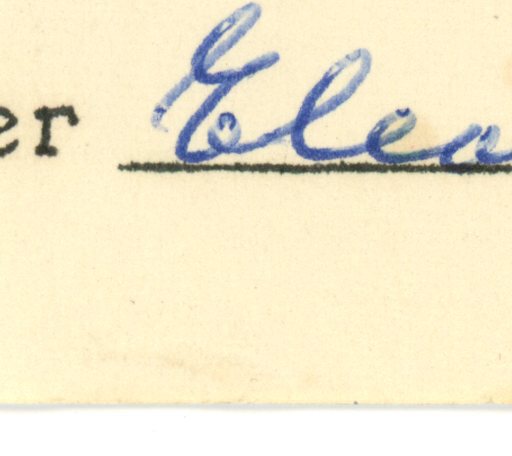 er Elea